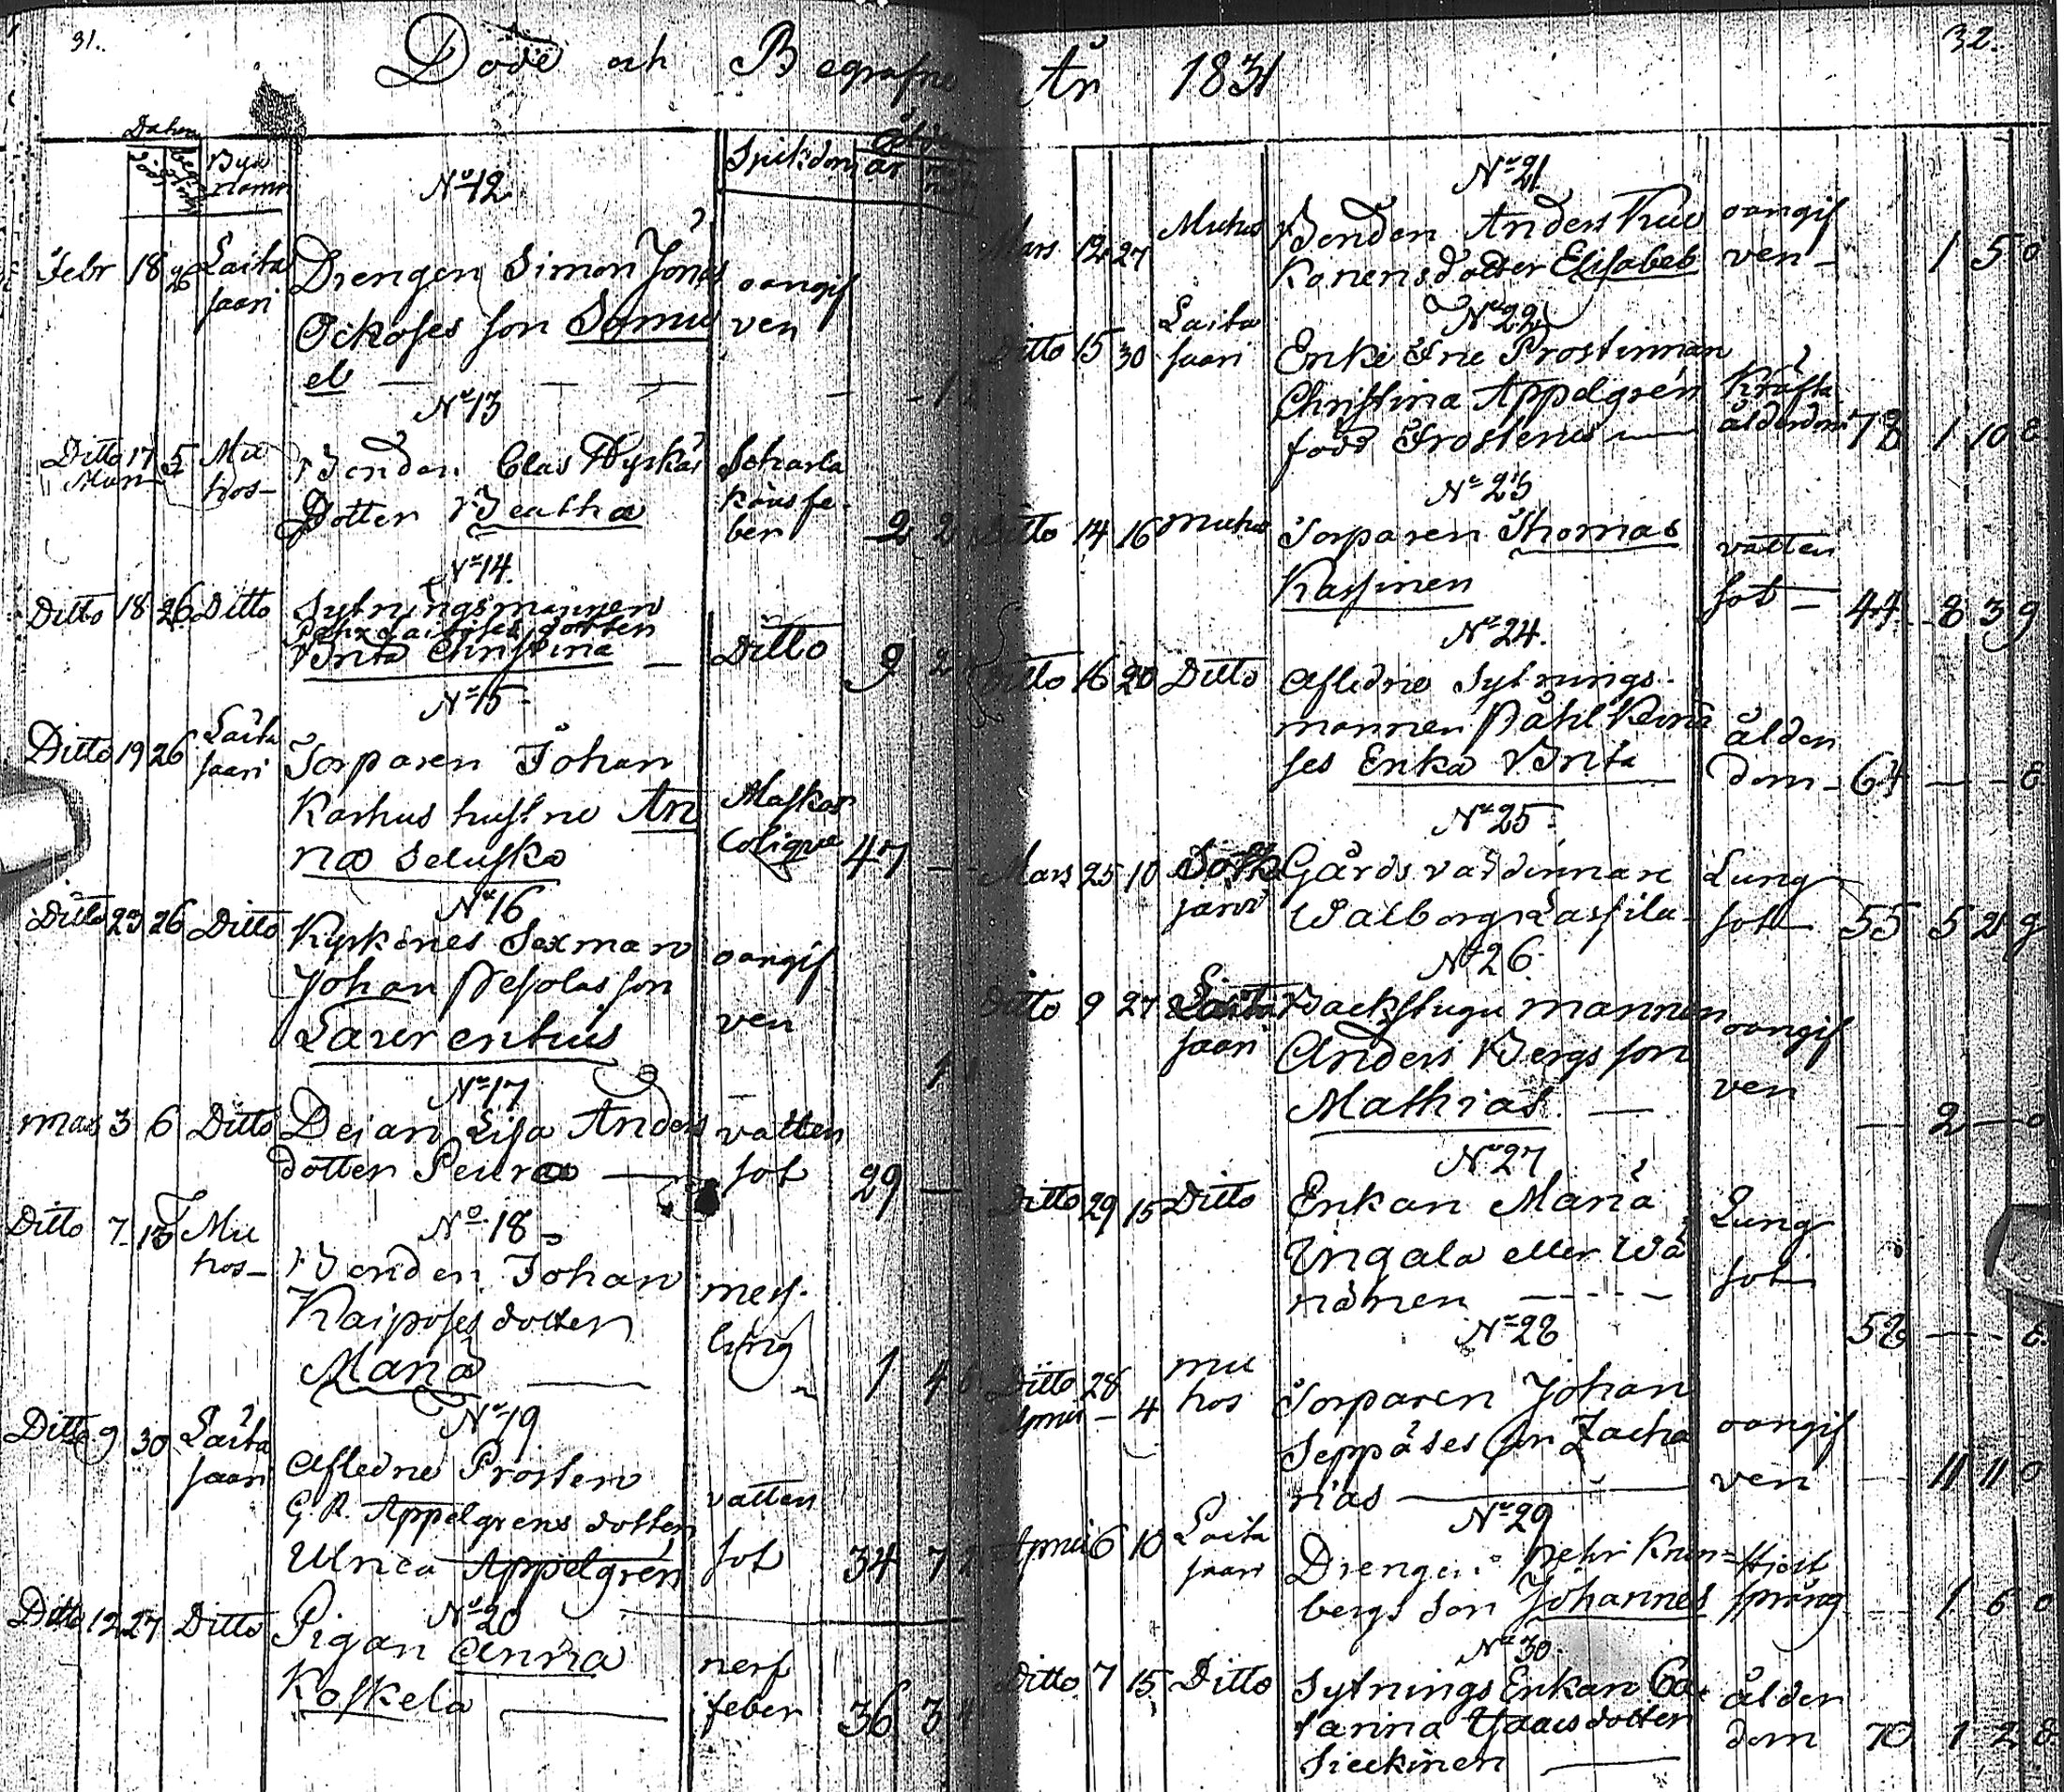 31.
Döde och Begrafne
Datum
Bya
namn
Sjukdom
år
No 12
Febr 18 26 Laita
saari
Drengen Simon Jonas
Ockoses son Samu
el
oangif
ven
No 13
Ditto 17 5 Mu
hos
Mars
Bonden Clas
Dotter Beatha
Scharla
kans fe
ber
2 2
No 14.
Ditto 18 26 Ditto
Sytningsmannen
dotter
Brita Christina
Ditto
9 2
No 15
Ditto 19 26 Laita
saari
Torparen Johan
Karhus hustru An
na Seluska
Maskar
Colique 47 —
No 16
Ditto 23 26 Ditto
Kyrkones Sexman
Johan Pesolas son
Laurentius
oangif
ven
No 17
Mars 3 6 Ditto
Dejan Lisa Anders
dotter Peura
vatten
sot 29 —
No 18
Ditto 7 13 Mu
hos
Bonden Johan
Kaiposes dotter
Maria
mess
ling
1 4
No 19
Ditto 9 30 Laita
saari
Afledne Prosten
G. R. Appelgrens dotter
Ulrica Appelgren
vatten
sot 34 7
No 20
Ditto 12 27 Ditto
Pigan Anna
Koskela
nerf
feber 36 3
32.
År 1831
No 21
Mars 12 27 Muhos
Bonden Anders
Konens dotter Elisabeb
oangif
ven
1 5 0
No 22
Ditto 15 30 Laita
saari
Enke Frue Prostinnan
Christina Appelgren
född Frostenus
Kräfta
ålderdom 78 1 10 E
No 23
Ditto 14 16 Muhos
Torparen Thomas
Kassinen
vatten
sot 44 8 3 g
No 24.
Ditto 16 20 Ditto
Afledne Sytnings
mannen Påhl
ses Enka Brita
ålder
dom 64 — — E
No 25
Mars 25 10 Sotka
järvi
Gårds värdinnan
Walborg Lassila
Lung
sot 55 5 21 g
No 26
Ditto 9 27 Laita
saari
Backstugu mannen
Anders Bergs son
Mathias
oangif
ven
— 2 — 0
No 27
Ditto 29 15 Ditto
Enkan Maria
Ingala eller Wä
nänen
Lung
sot
58 — — E
No 28
Ditto 28
April 4 Mu
hos
Torparen Johan
Seppäses son Zacha
rias
oangif
ven
11 11 0
No 29
April 6 10 Laita
saari
Drengen Pehr Kron
bergs son Johannes
språng
1 6 0
No 30
Ditto 7 15 Ditto
Sytnings Enkan Ca
tarina Isaacs dotter
Sieckinen
ålder
dom 70 1 2